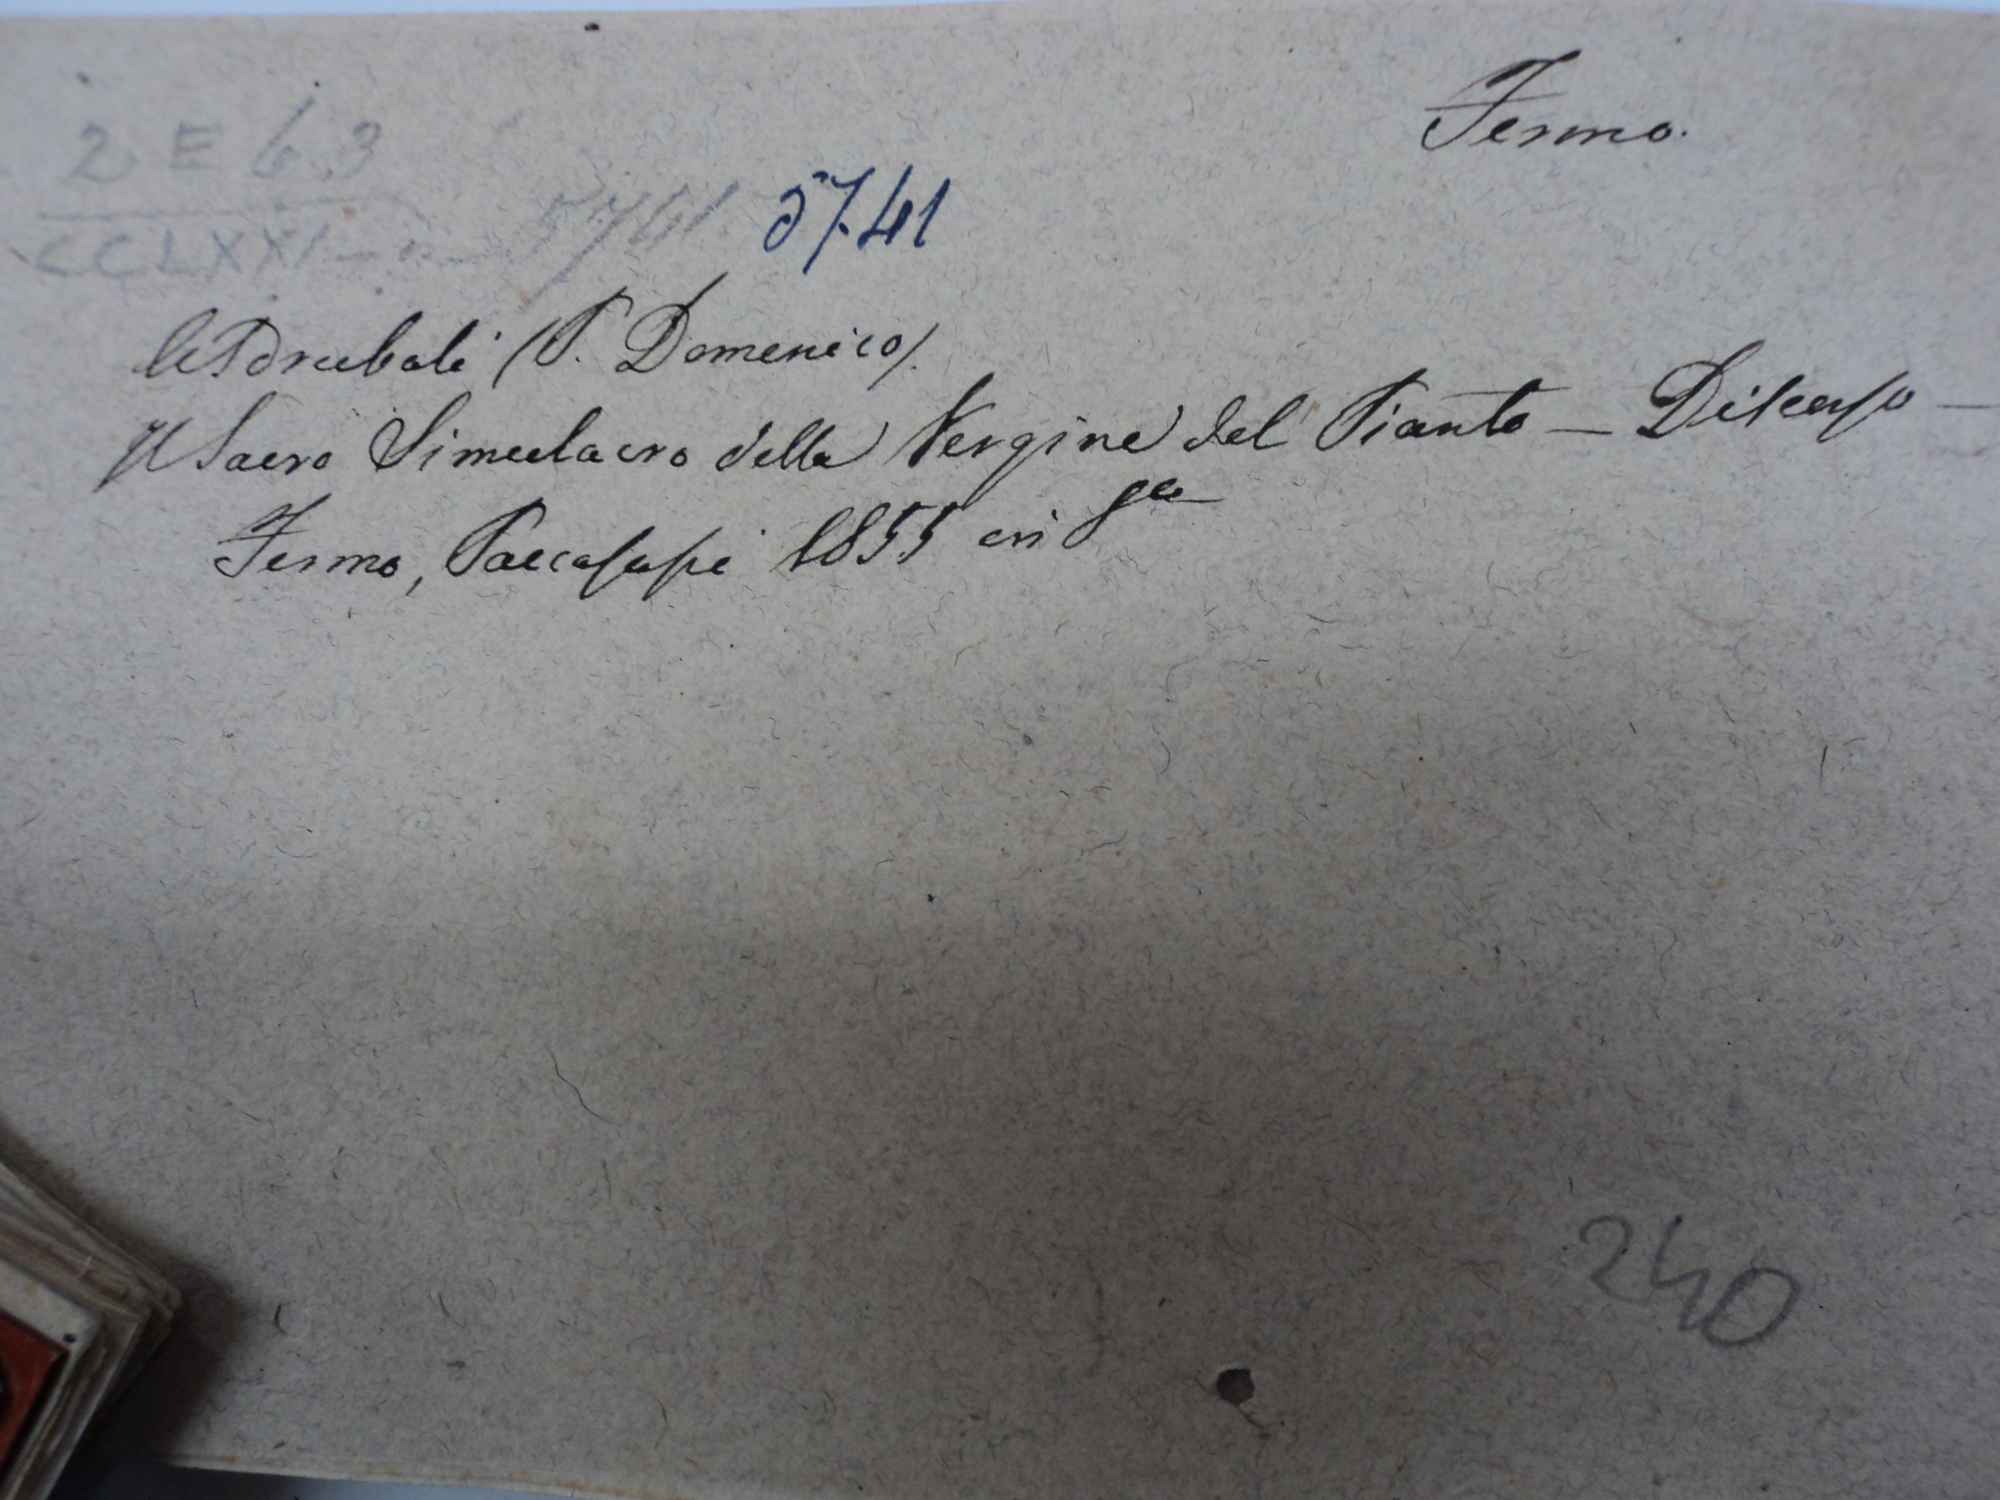 Fermo.
2 E 63
CCLXXI - n. 5741 5741
Asdrubali (P. Domenico).
Il Sacro Simulacro della Vergine del Pianto — Discorso —
Fermo, Paccasassi 1855 in 8º
240